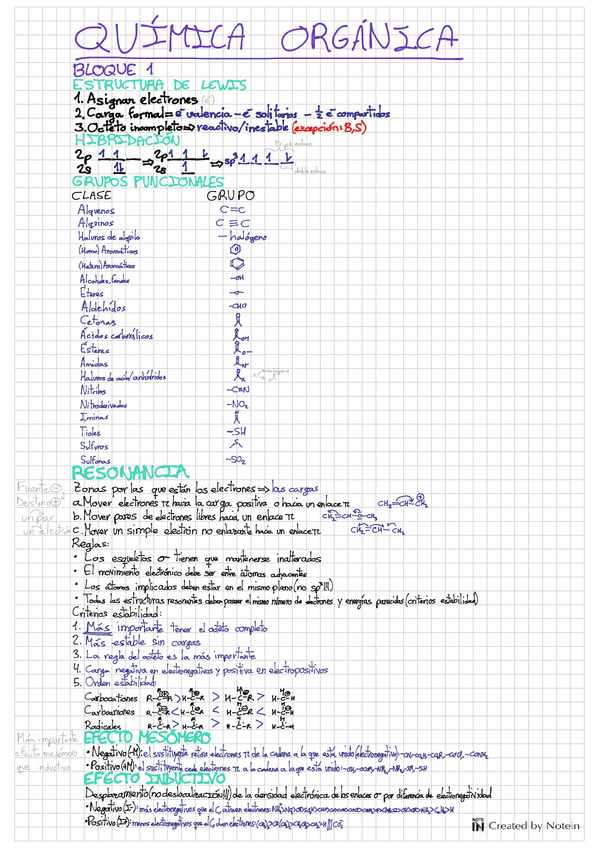 QUÍMICA ORGÁNICA
BLOQUE 1
ESTRUCTURA DE LEWIS
1. Asignar electrones (e⁻)
2. Carga formal = e⁻ valencia - e⁻ solitarios - ½ e⁻ compartidos
3. Octeto incompleto ⇒ reactivo/inestable (excepción: B,S)
HIBRIDACIÓN
2p 1 1 ⇒ 2p 1 1 1 ⇒ sp³ 1 1 1 1
2s 1l 2s 1
GRUPOS FUNCIONALES
CLASE GRUPO
Alquenos C=C
Alquinos C≡C
Haluros de alquilo - halógeno
(Homo) Aromáticos
(Hetero) Aromáticos
Alcoholes, fenoles -OH
Éteres -O-
Aldehídos -CHO
Cetonas
Ácidos carboxílicos OH
Ésteres O-
Amidas
Haluros de acilo/anhídridos X
Nitrilos -C≡N
Nitroderivados -NO₂
Iminas
Tioles -SH
Sulfuros S
Sulfonas -SO₂
RESONANCIA
Zonas por las que están los electrones ⇒ las cargas
Fuente ⊖
Destino ⊕
un par
un electrón
a. Mover electrones π hacia la carga positiva o hacia un enlace π
b. Mover pares de electrones libres hacia un enlace π
c. Mover un simple electrón no enlazante hacia un enlace π
Reglas:
• Los esqueletos σ tienen que mantenerse inalterados
• El movimiento electrónico debe ser entre átomos adyacentes
• Los átomos implicados deben estar en el mismo plano (no sp³!!!)
• Todas las estructuras resonantes deben poseer el mismo número de electrones y energías parecidas (criterios estabilidad)
Criterios estabilidad:
1. Más importante tener el octeto completo
2. Más estable sin cargas
3. La regla del octeto es la más importante
4. Carga negativa en electronegativos y positiva en electropositivos
5. Orden estabilidad:
Carbocationes R-C-R > H-C-R > H-C-R > H-C-H
Carbaniones R-C-R < H-C-R < H-C-R < H-C-H
Radicales R-C-R > H-C-R > H-C-R > H-C-H
EFECTO MESÓMERO
Más importante
efecto mesómero
que inductivo
• Negativo (-M): el sustituyente retira electrones π de la cadena a la que está unido (electronegativo)
• Positivo (+M): el sustituyente cede electrones π a la cadena a la que está unido
EFECTO INDUCTIVO
Desplazamiento (no deslocalización!!!) de la densidad electrónica de los enlaces σ por diferencia de electronegatividad
• Negativo (I-): más electronegativos que el C, atraen electrones
• Positivo (I+): menos electronegativos que el C, dan electrones
NOTE IN Created by Notein